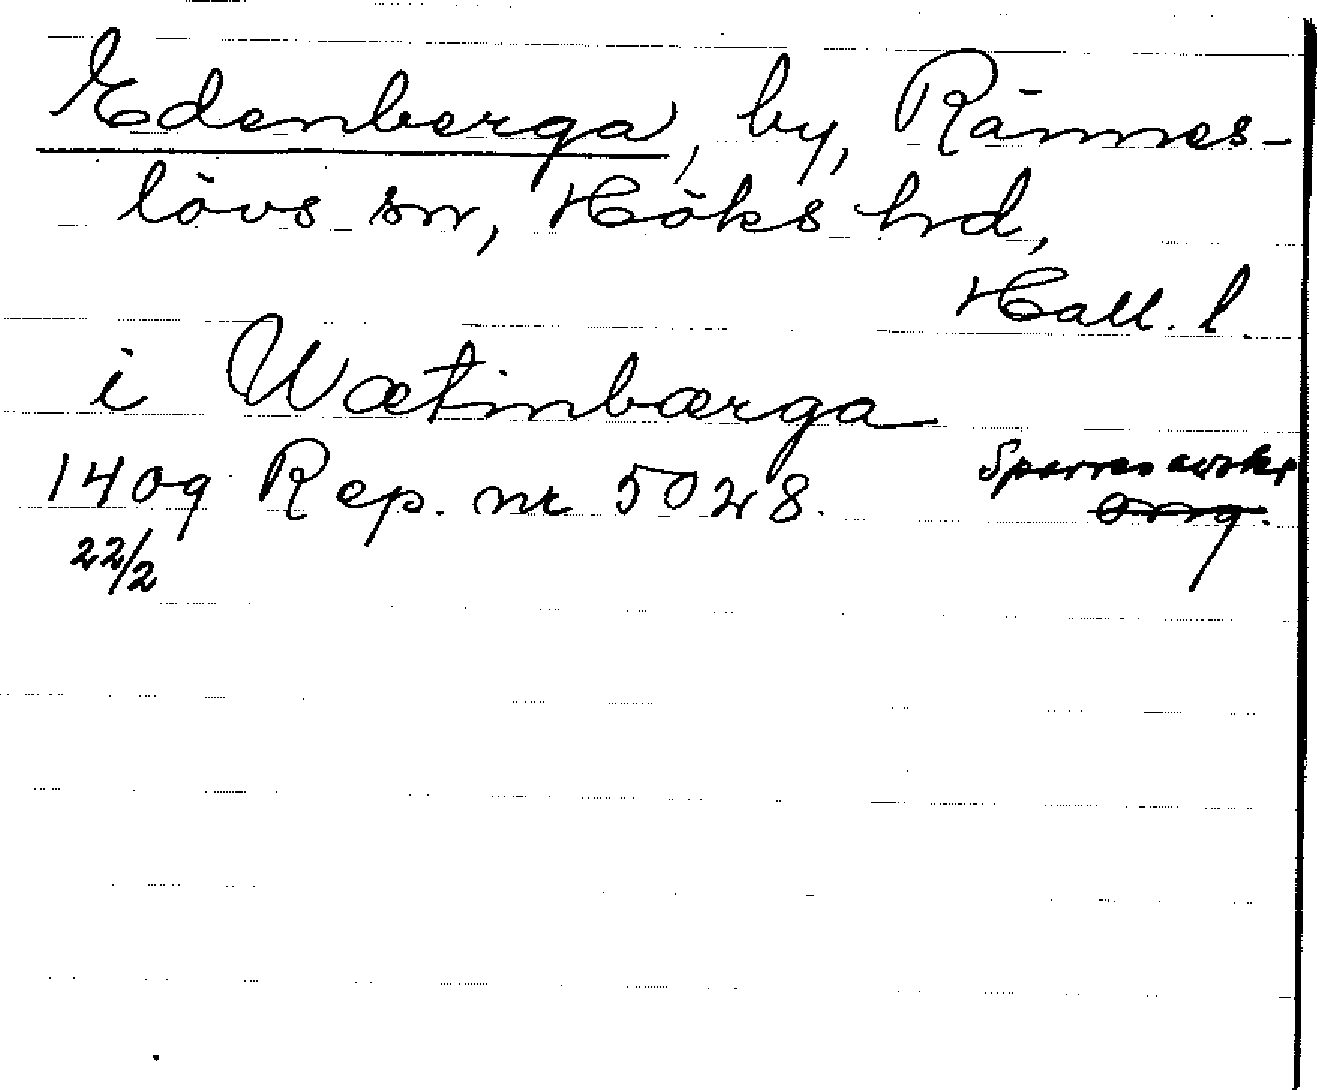 Edenberga, by, Rännes-
lövs sn, Höks hrd,
Hall. l.
i Wætinbærga
1409 Rep. nr 5028. Sparres avskr
22/2 Orig.